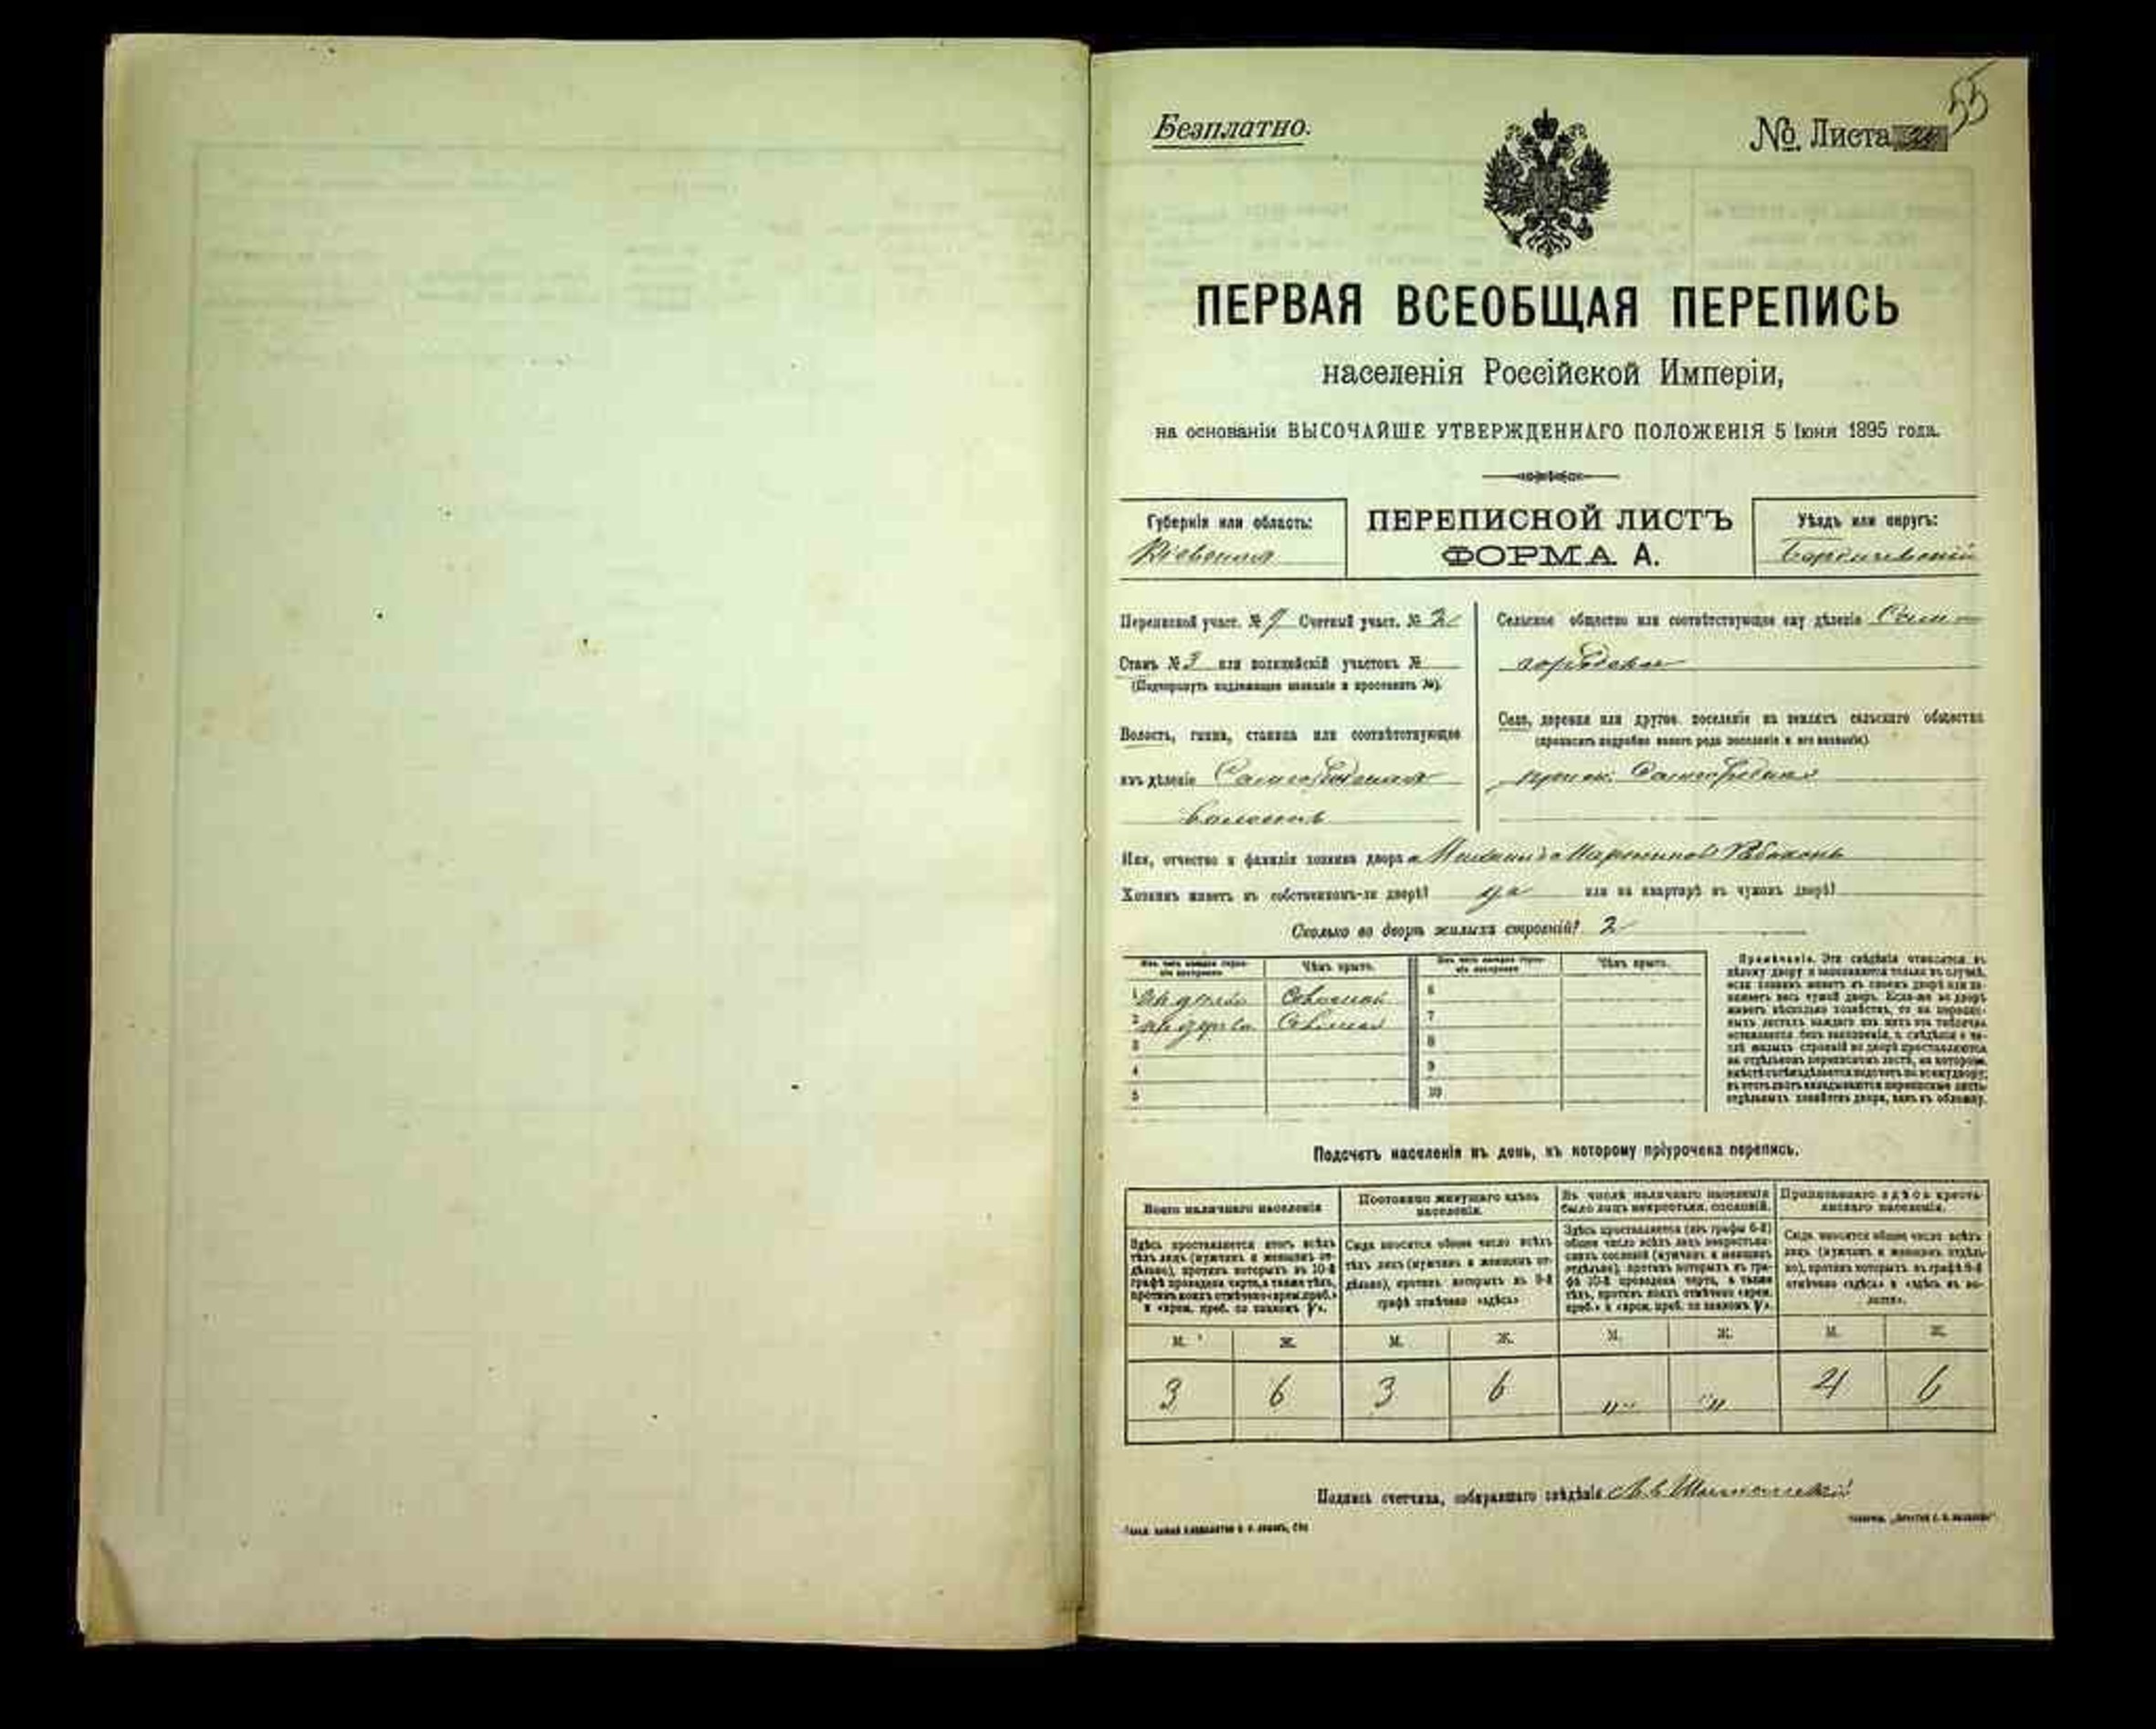 55
Безплатно.
№ Листа
ПЕРВАЯ ВСЕОБЩАЯ ПЕРЕПИСЬ
населенія Россійской Имперіи,
на основаніи ВЫСОЧАЙШЕ УТВЕРЖДЕННАГО ПОЛОЖЕНІЯ 5 Іюня 1895 года.
Губернія или область:
Кіевская
ПЕРЕПИСНОЙ ЛИСТЪ
ФОРМА А.
Уѣздъ или округъ:
Бердичевскій
Переписной участ. № 7 Счетный участ. № 2
Станъ № 3 или полицейскій участокъ №
(Подчеркнуть надлежащее названіе и проставить №).
Волость, гмина, станица или соотвѣтствующее
имъ дѣленіе Самгородская
волость
Сельское общество или соотвѣтствующее ему дѣленіе Сам-
городское
Село, деревня или другое поселеніе на земляхъ сельскаго общества
(прописать подробно какого рода поселеніе и его названіе)
Имя, отчество и фамилія хозяина двора Мартиновъ
Хозяинъ живетъ въ собственномъ-ли дворѣ? да или на квартирѣ въ чужомъ дворѣ?
Сколько во дворѣ жилыхъ строеній? 2
Изъ чего каждое строеніе построено
Чѣмъ крыто.
Изъ чего каждое строеніе построено
Чѣмъ крыто.
1 Изъ дерева Соломой 6
2 Изъ дерева Соломой 7
3 8
4 9
5 10
Примѣчаніе. Эти свѣдѣнія относятся къ
цѣлому двору и заполняются только въ случаѣ,
если хозяинъ живетъ въ своемъ дворѣ или за-
нимаетъ весь чужой дворъ. Если-же во дворѣ
живетъ нѣсколько хозяйствъ, то на перепис-
ныхъ листахъ каждаго изъ нихъ эта табличка
оставляется безъ заполненія, а свѣдѣнія о чи-
слѣ жилыхъ строеній во дворѣ проставляются
на отдѣльномъ переписномъ листѣ, на которомъ
вмѣстѣ съ тѣмъ дѣлается подсчетъ по всему двору;
въ этотъ листъ вкладываются переписные листы
отдѣльныхъ хозяйствъ двора, какъ въ обложку.
Подсчетъ населенія въ день, къ которому пріурочена перепись.
Всего наличнаго населенія
Здѣсь проставляется итогъ всѣхъ
тѣхъ лицъ (мужчинъ и женщинъ от-
дѣльно), противъ которыхъ въ 10-й
графѣ проведена черта, а также тѣхъ,
противъ коихъ отмѣчено «врем. преб.»
и «врем. преб. со знакомъ V».
Постоянно живущаго здѣсь
населенія.
Сюда вносится общее число всѣхъ
тѣхъ лицъ (мужчинъ и женщинъ от-
дѣльно), противъ которыхъ въ 9-й
графѣ отмѣчено «здѣсь»
Въ числѣ наличнаго населенія
было лицъ некрестьян. сословій.
Здѣсь проставляется (изъ графы 6-й)
общее число всѣхъ лицъ некрестьян-
скихъ сословій (мужчинъ и женщинъ
отдѣльно), противъ которыхъ въ гра-
фѣ 10-й проведена черта, а также
тѣхъ, противъ коихъ отмѣчено «врем.
преб.» и «врем. преб. со знакомъ V».
Приписаннаго здѣсь кресть-
янскаго населенія.
Сюда вносится общее число всѣхъ
лицъ (мужчинъ и женщинъ отдѣль-
но), противъ которыхъ въ графѣ 8-й
отмѣчено «здѣсь» и «здѣсь въ во-
лости».
М. Ж. М. Ж. М. Ж. М. Ж.
3 6 3 6 " " 4 6
Подпись счетчика, собиравшаго свѣдѣнія